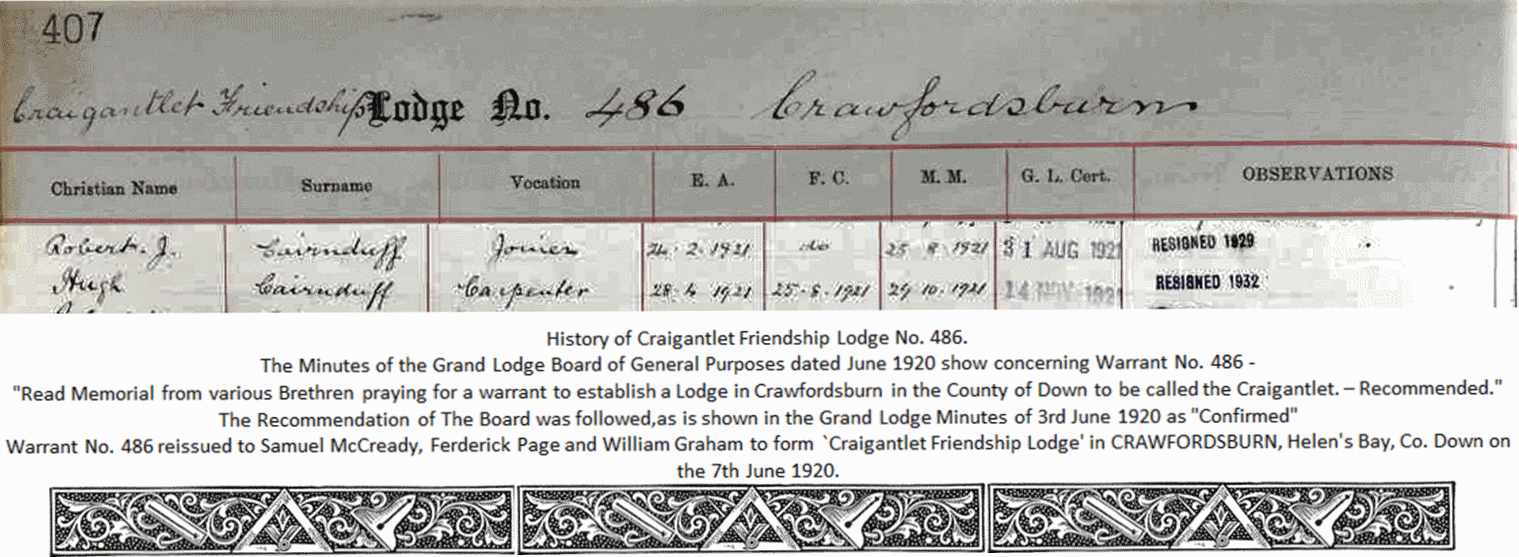 407
Craigantlet Friendship Lodge No. 486 Crawfordsburn
Christian Name Surname Vocation E. A. F. C. M. M. G. L. Cert. OBSERVATIONS
Robert. J. Cairnduff Joiner 24. 2. 1921 do 25. 8. 1921 31 AUG 1921 RESIGNED 1929
Hugh Cairnduff Carpenter 28. 4 1921 25. 8. 1921 29 10. 1921 14 NOV 1921 RESIGNED 1932
History of Craigantlet Friendship Lodge No. 486.
The Minutes of the Grand Lodge Board of General Purposes dated June 1920 show concerning Warrant No. 486 -
"Read Memorial from various Brethren praying for a warrant to establish a Lodge in Crawfordsburn in the County of Down to be called the Craigantlet. – Recommended."
The Recommendation of The Board was followed,as is shown in the Grand Lodge Minutes of 3rd June 1920 as "Confirmed"
Warrant No. 486 reissued to Samuel McCready, Ferderick Page and William Graham to form `Craigantlet Friendship Lodge' in CRAWFORDSBURN, Helen's Bay, Co. Down on
the 7th June 1920.